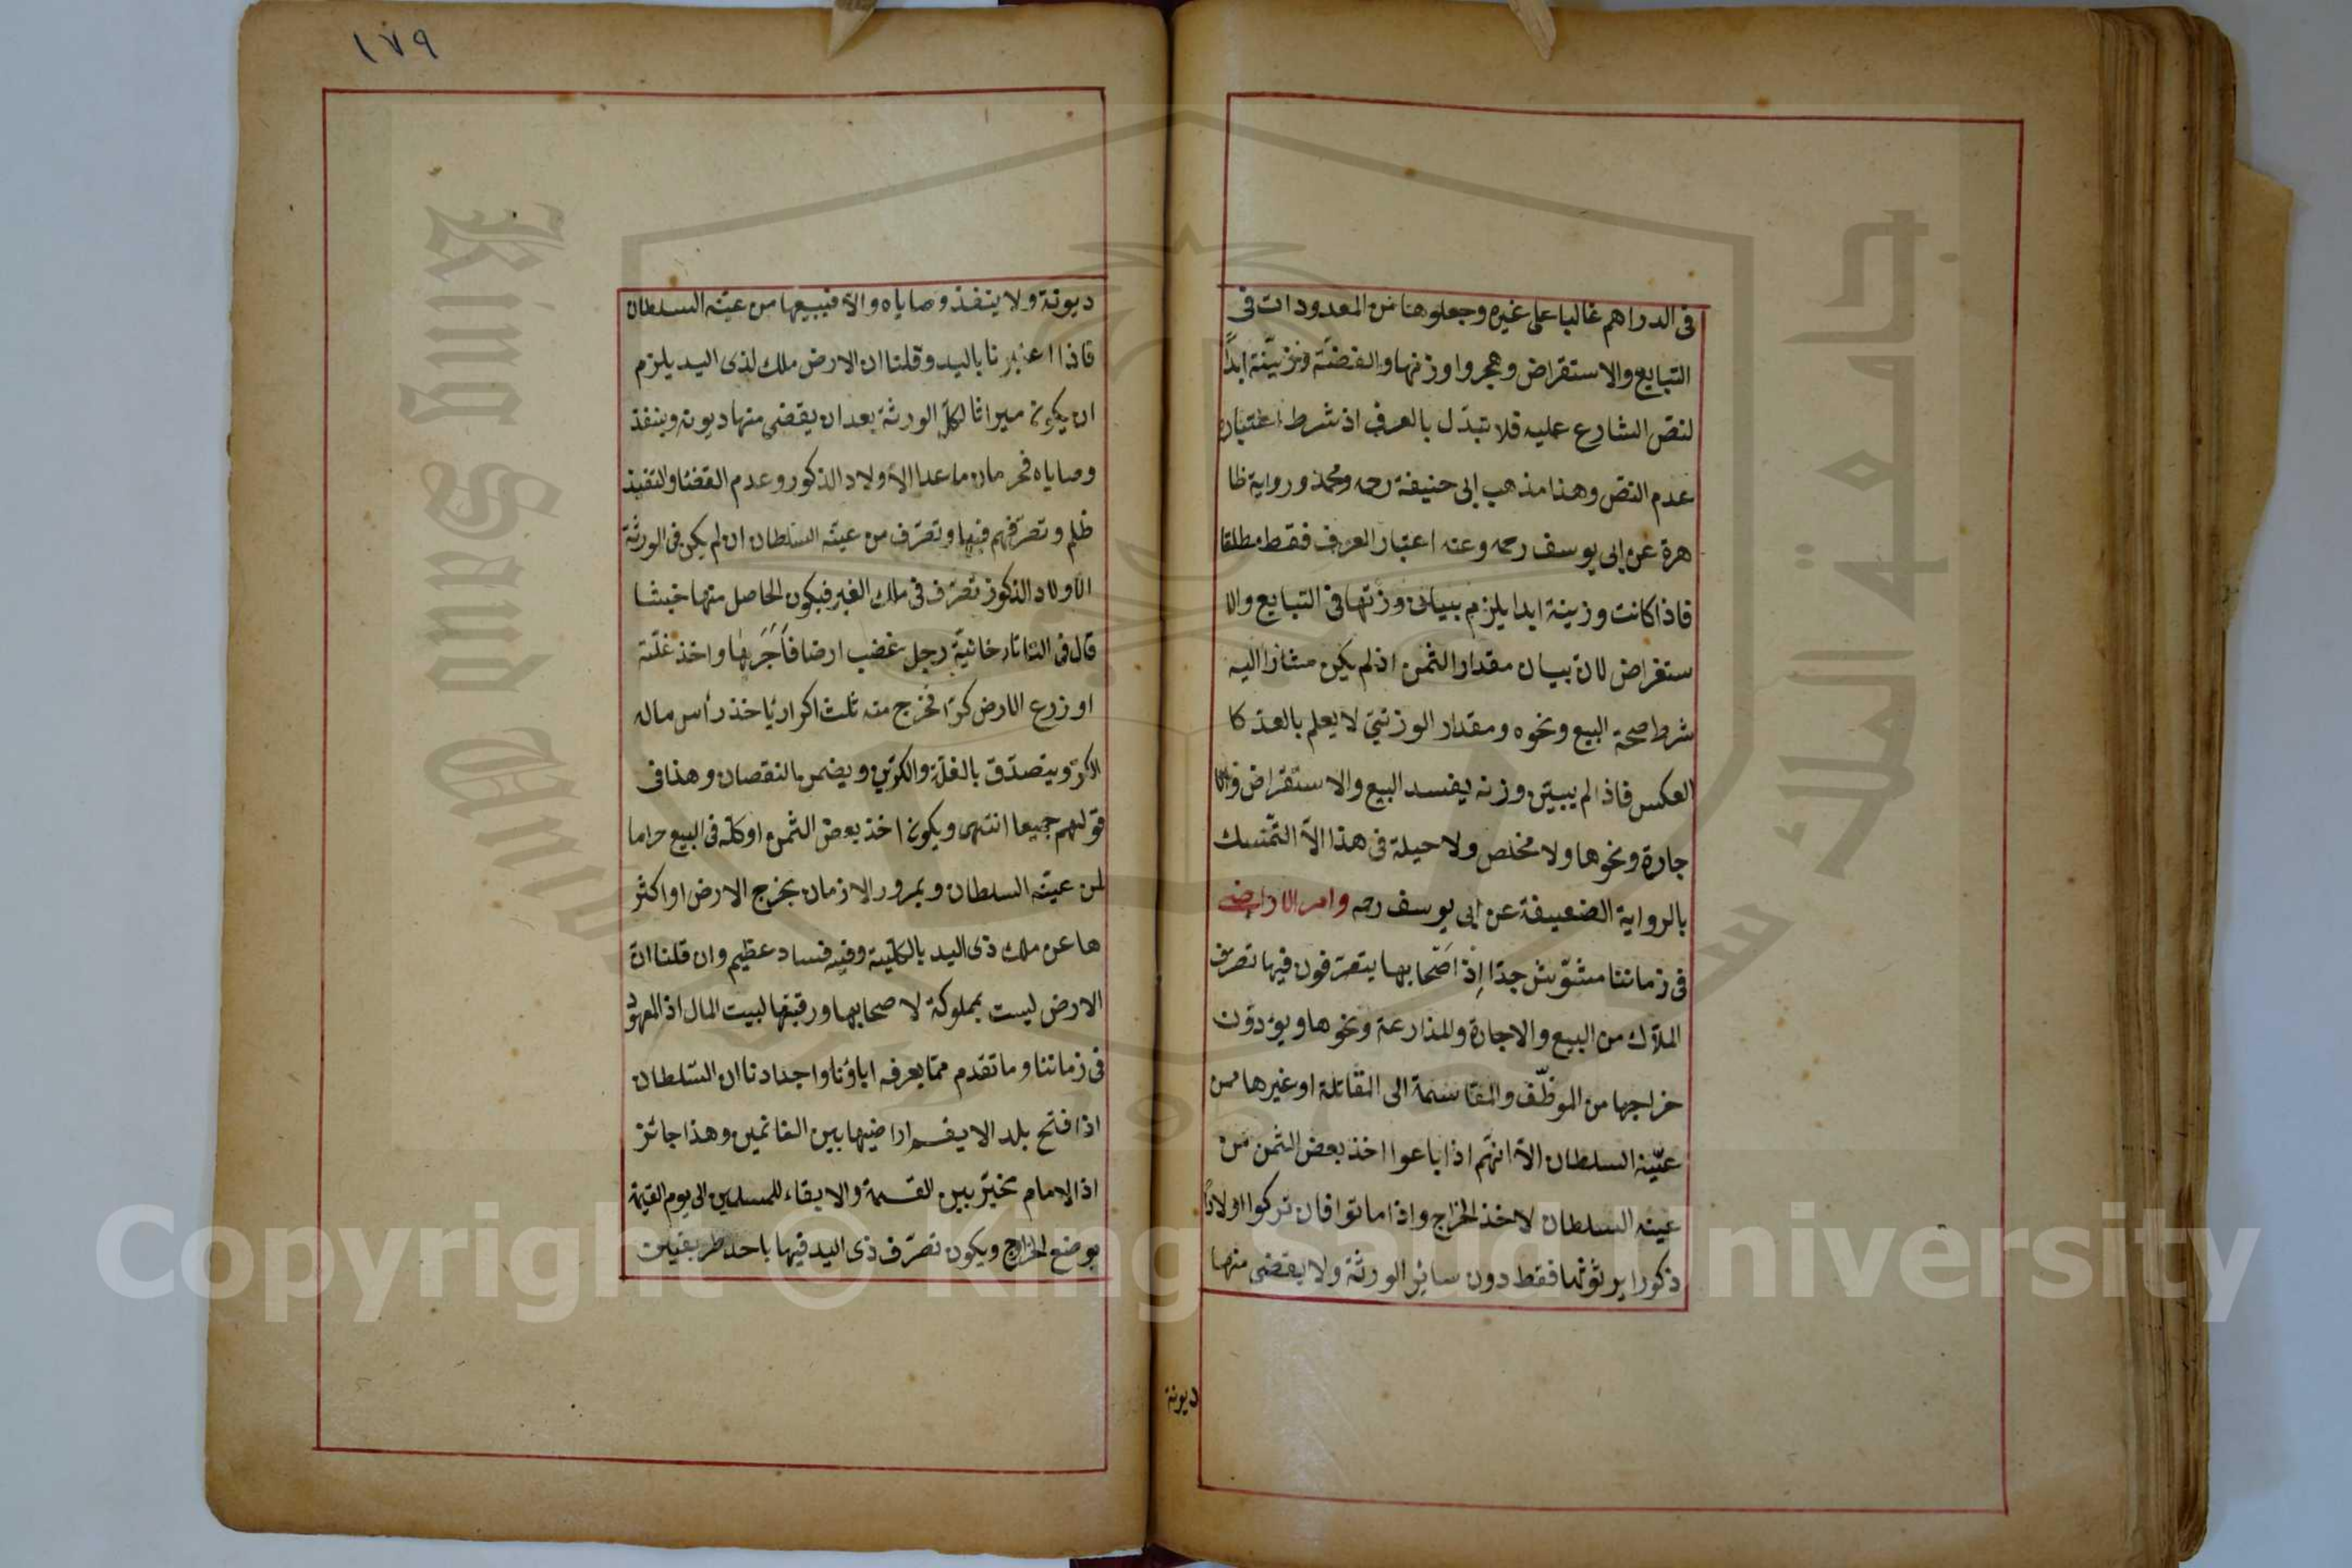 فى الدراهم غالبا على غيره وجعلوها من المعدودات فى
التبايع والاستقراض وهجروا وزنها والفضة وزنيّنة ابدًا
لنصّ الشارع عليه فلا تتبدّل بالعرف اذ شرط اعتباره
عدم النصّ وهذا مذهب ابى حنيفة رحمه ومحمد ورواية ظا
هرة عن ابى يوسف رحمه وعنه اعتبار العرف فقط مطلقا
فاذا كانت وزينة ابدا يلزم بيبان وزنها فى التبايع والا
ستقراض لان بيان مقدار الثمن اذ لم يكن مشارا اليه
شرط صحة البيع ونحوه ومقدار الوزنىّ لا يعلم بالعدّ كا
العكس فاذا لم يبيّن وزنه يفسد البيع والاستقراض والا
جارة ونحوها ولا مخلص ولا حيلة فى هذا الاّ التمسك
بالرواية الضعيفة عن ابى يوسف رحمه وامر الاراضى
فى زماننا مشوّش جدّا اذ اصحابها يتصرّفون فيها تصرّف
الملاّك من البيع والاجارة والمذارعة ونحوها ويؤدّون
خراجها من الموظّف والمقاسمة الى المقاتلة او غيرها ممن
عيّنه السلطان الاّ انهّم اذا باعوا اخذ بعض الثمن من
عينه السلطان لاخذ الخراج واذا ماتوا فان تركوا اولادًا
ذكورا يرثوثها فقط دون سائر الورثة ولا يقضى منها
ديونة
١٧٩
ديونة ولا ينفذ وصاياه والاّ فيبيعها من عيّنه السلطان
فاذا اعتبرنا باليد وقلنا ان الارض ملك لذى اليد يلزم
ان يكون ميراثا لكلّ الورثة بعد ان يقضى منها ديونه وينفذ
وصاياه فحرمان ما عدا الاولاد الذكور وعدم القضا والتنفيذ
ظلم وتصرّفهم فيها وتصرّف من عيّنه السلطان ان لم يكن فى الورثة
الاولاد الذكور تصرّف فى ملك الغير فيكون الحاصل منها خبيثا
قال فى التاتارخانيّة رجل غضب ارضا فاَجَرَها واخذ غلّتة
او زرع الارض كرّا فخرج منه ثلث اكرار يأخذ رأس ماله
الكرّ ويتصدّق بالغلّة والكرّين ويضمن النقصان وهذا فى
قولهم جميعا انتهى ويكون اخذ بعض الثمن او كلّه فى البيع حراما
لمن عيّنه السلطان وبمرور الازمان يخرج الارض او اكثر
ها عن ملك ذى اليد بالكلّية وفيه فساد عظيم وان قلنا انّ
الارض ليست بمملوكة لاصحابها ورقبتها لبيت المال اذ المعهود
فى زماننا وما تقدم ممّا يعرفه اباؤنا واجدادنا ان السّلطان
اذا فتح بلدا لا يقسم اراضيها بين الغانمين وهذا جائز
اذ الامام تخيّر بين القسمة والابقاء للمسلمين الى يوم القيمة
بوضع الخراج ويكون تصرّف ذى اليد فيها باحد طريقين